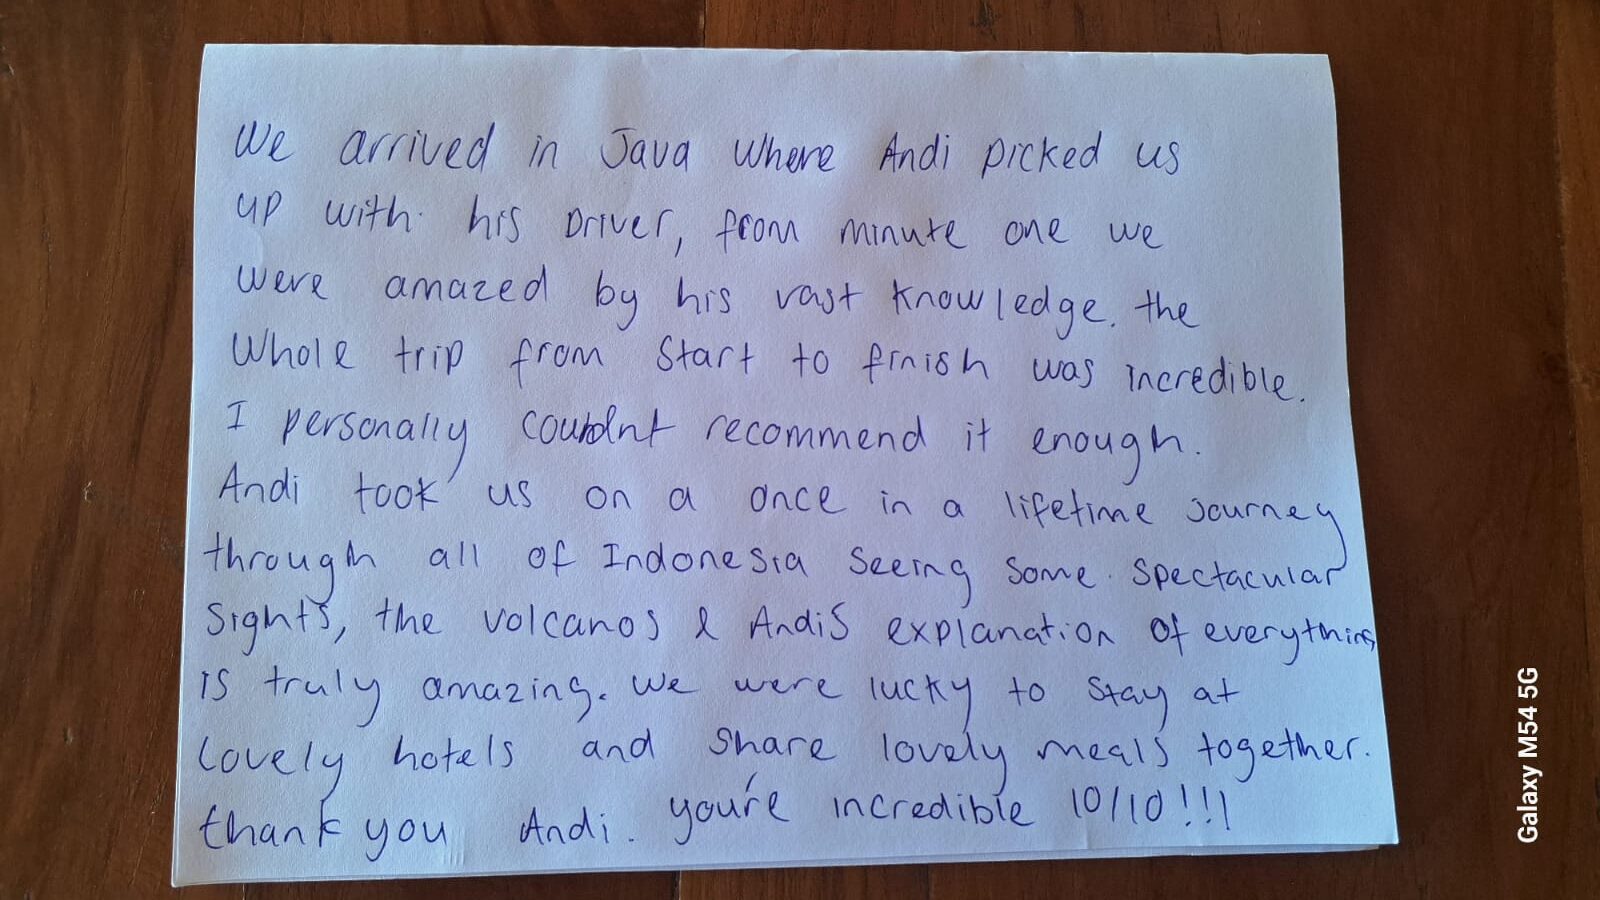 We arrived in Java where Andi picked us
up with his Driver, from minute one we
were amazed by his vast knowledge. the
whole trip from start to finish was incredible.
I personally couldnt recommend it enough.
Andi took us on a once in a lifetime journey
through all of Indonesia seeing some spectacular
sights, the volcanos & Andis explanation of everything
is truly amazing. we were lucky to stay at
lovely hotels and share lovely meals together.
thank you Andi. you're incredible 10/10!!!
Galaxy M54 5G